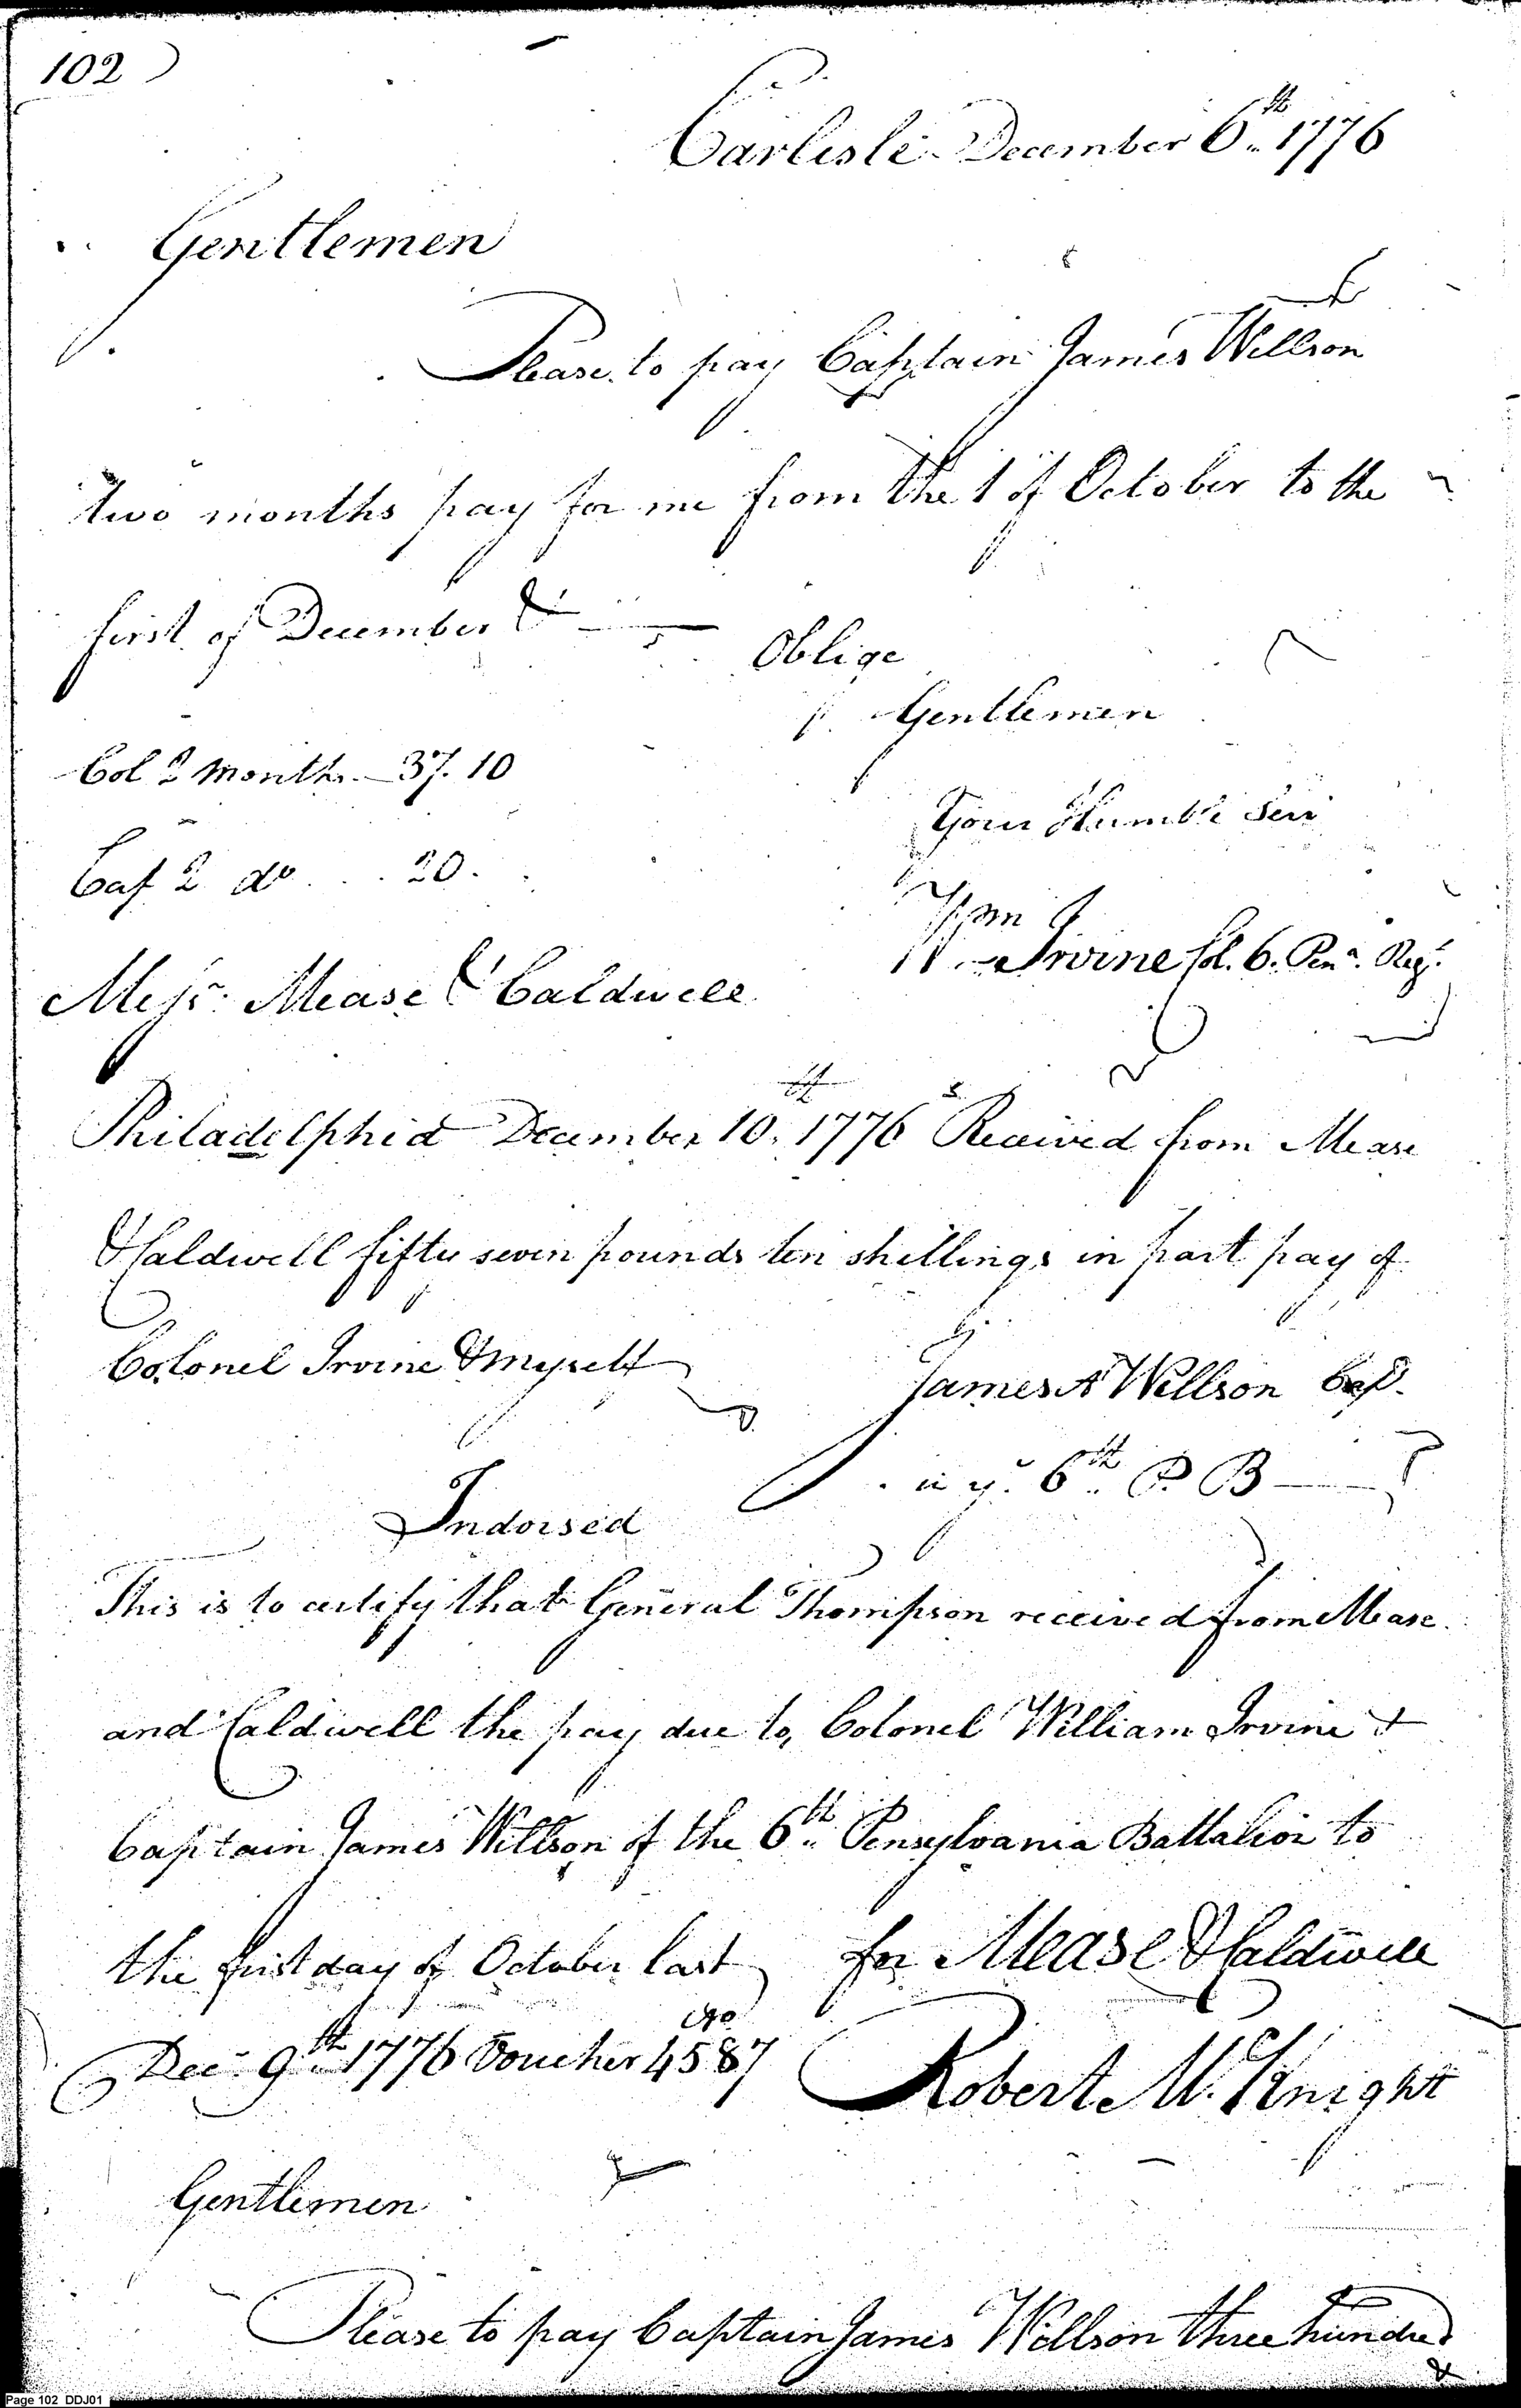 102
Carlisle December 6th 1776
Gentlemen
Please to pay Captain James Willson
two months pay for me from the 1 of October to the
first of December &
Oblige
Gentlemen
Col 2 Months 37. 10
Your Humble Serv
Cap 2 do . . 20.
Wm Irvine Col. 6. Pena. Regt.
Messrs. Mease & Caldwell
Philadelphia December 10th 1776 Received from Mease
& Caldwell fifty seven pounds ten shillings in part pay of
Colonel Irvine & myself
James A Willson Cap.
in ye. 6th P B
Indorsed
This is to certify that General Thompson received from Mease
and Caldwell the pay due to Colonel William Irvine &
Captain James Willson of the 6th Pensylvania Battalion to
the first day of October last
for Mease & Caldwell
Dec. 9th 1776 Voucher No 4587
Robert Mc. Knight
Gentlemen
Please to pay Captain James Willson three hundred
&
Page 102 DDJ01